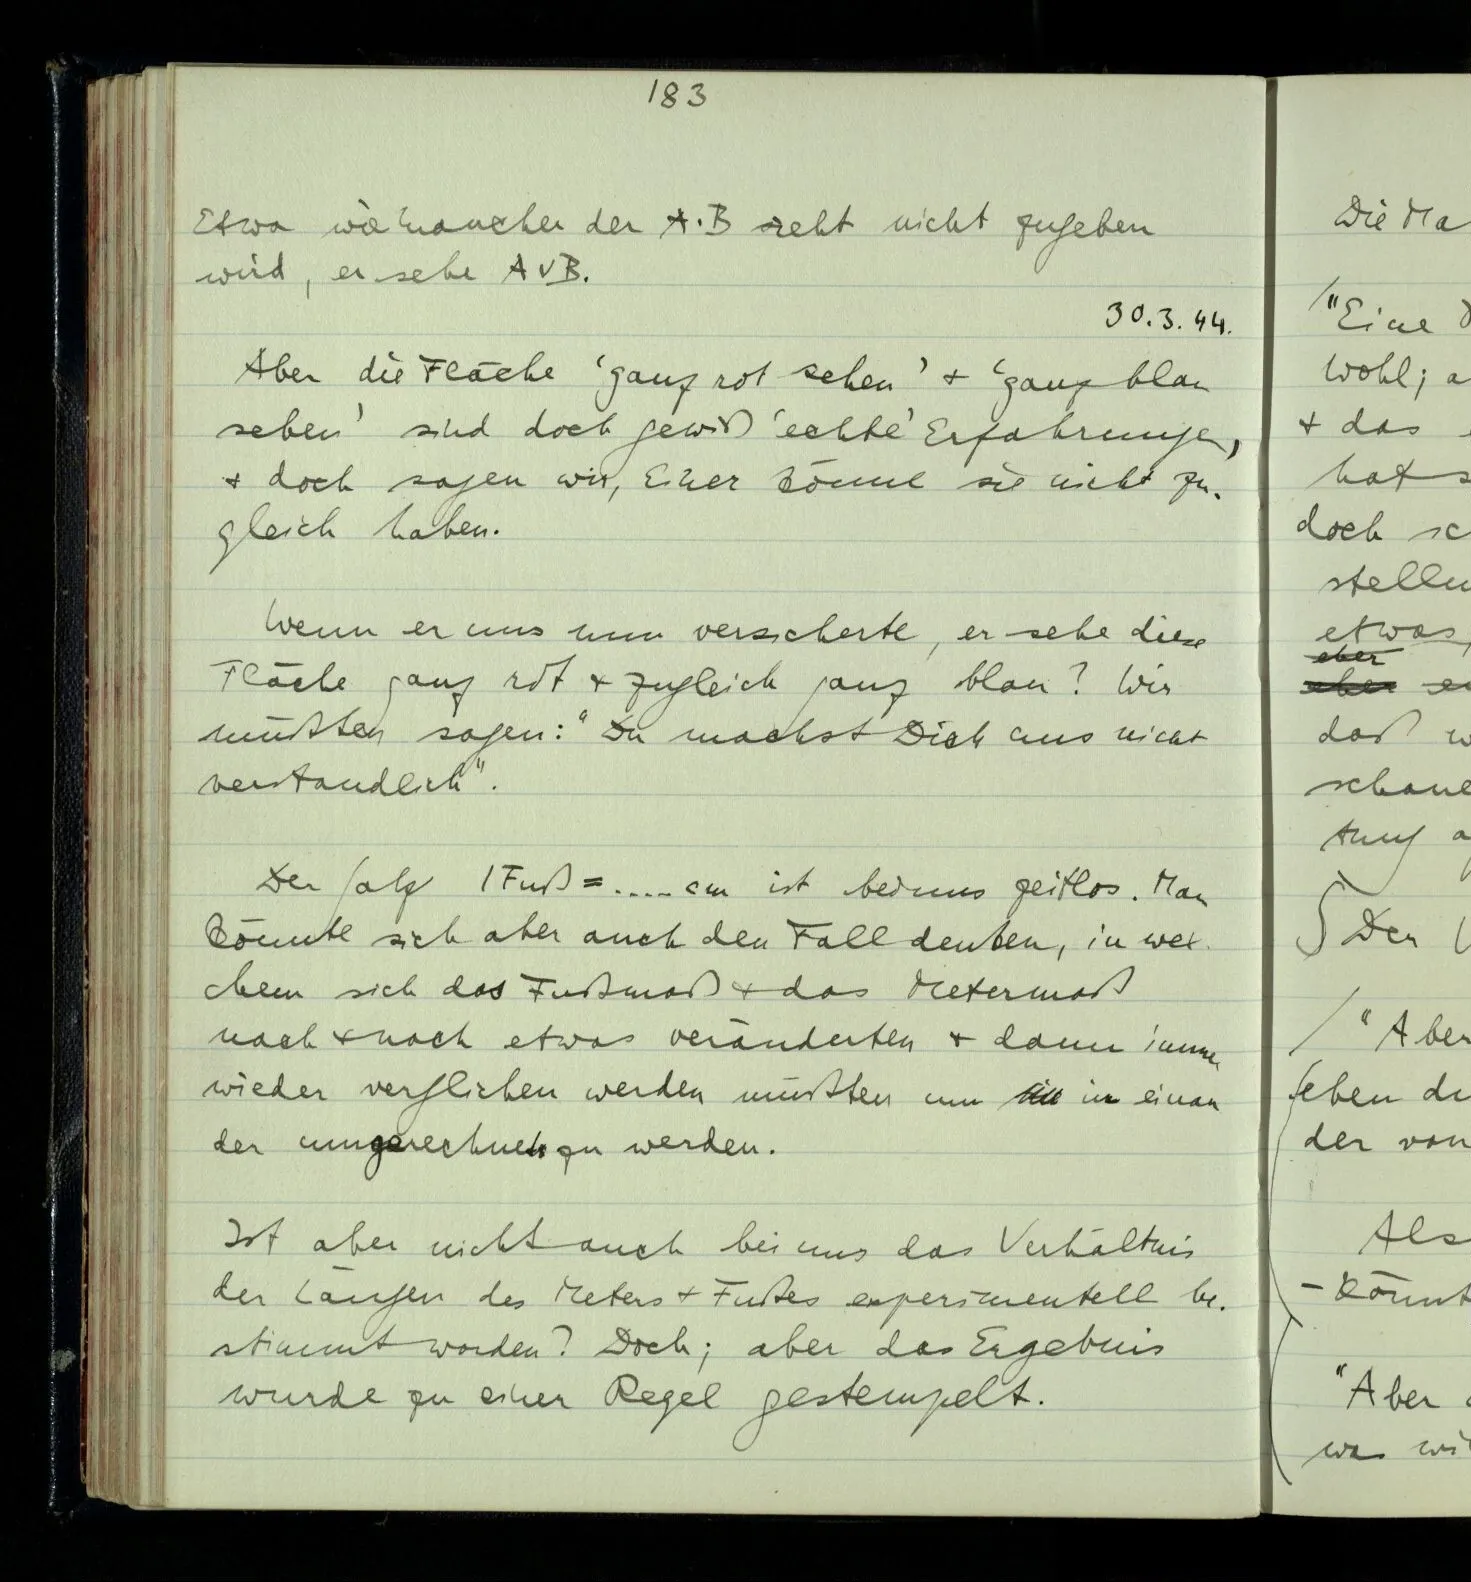 183
Etwa wie mancher der A·B sieht nicht zugeben
wird, er sehe A v B.
30.3.44.
Aber die Fläche 'ganz rot sehen' + 'ganz blau
sehen' sind doch gewiß 'echte' Erfahrungen,
+ doch sagen wir, Einer könne sie nicht zu-
gleich haben.
Wenn er uns nun versicherte, er sehe diese
Fläche ganz rot + zugleich ganz blau? Wir
müßten sagen: "Du machst Dich uns nicht
verständlich".
Der Satz 1 Fuß = ..... cm ist bei uns zeitlos. Man
könnte sich aber auch den Fall denken, in wel-
chem sich das Fußmaß + das Metermaß
nach + nach etwas veränderten + dann immer
wieder verglichen werden müßten um in einan
der umgerechnet zu werden.
Ist aber nicht auch bei uns das Verhältnis
der Längen des Meters + Fußes experimentell be-
stimmt worden? Doch; aber das Ergebnis
wurde zu einer Regel gestempelt.
Die Ma
/"Eine
Wohl; a
+ das
hat s
doch sc
stellu
etwas,
eher
daß w
schaue
Der
/ "Aber
eben di
der von
Als
- könnt
"Aber
was wi